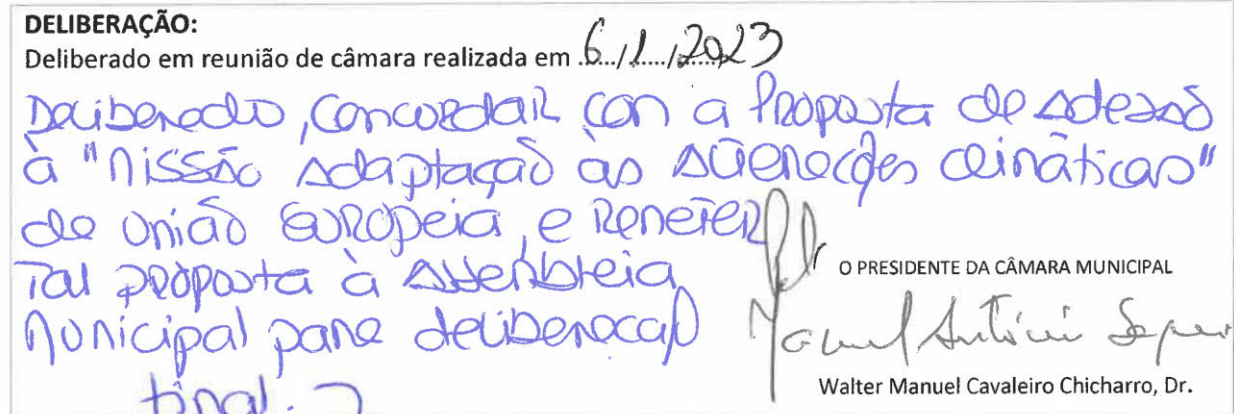 DELIBERAÇÃO:
Deliberado em reunião de câmara realizada em 6/1/2023
Deliberado, concordar com a proposta de adesão
à "Missão Adaptação às Alterações Climáticas"
da União Europeia, e remeter
tal proposta à Assembleia
Municipal para deliberação
final.
O PRESIDENTE DA CÂMARA MUNICIPAL
Manuel António Sequeira
Walter Manuel Cavaleiro Chicharro, Dr.